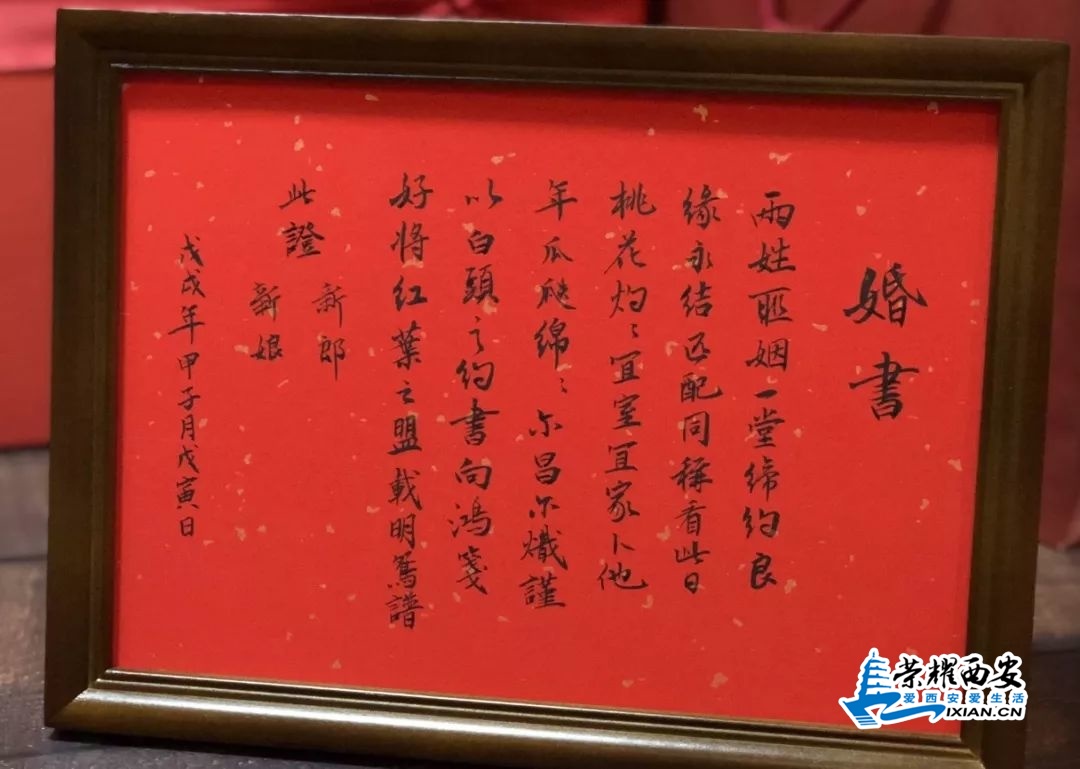 婚書
兩姓匪姻一堂締約良
緣永結匹配同稱看此日
桃花灼〻宜室宜家卜他
年瓜瓞綿〻尔昌尔熾謹
以白頭之約書向鴻箋
好將红葉之盟載明鴛譜
此證
新郎
新娘
戊戌年甲子月戊寅日
荣耀西安
爱西安爱生活
IXIAN.CN